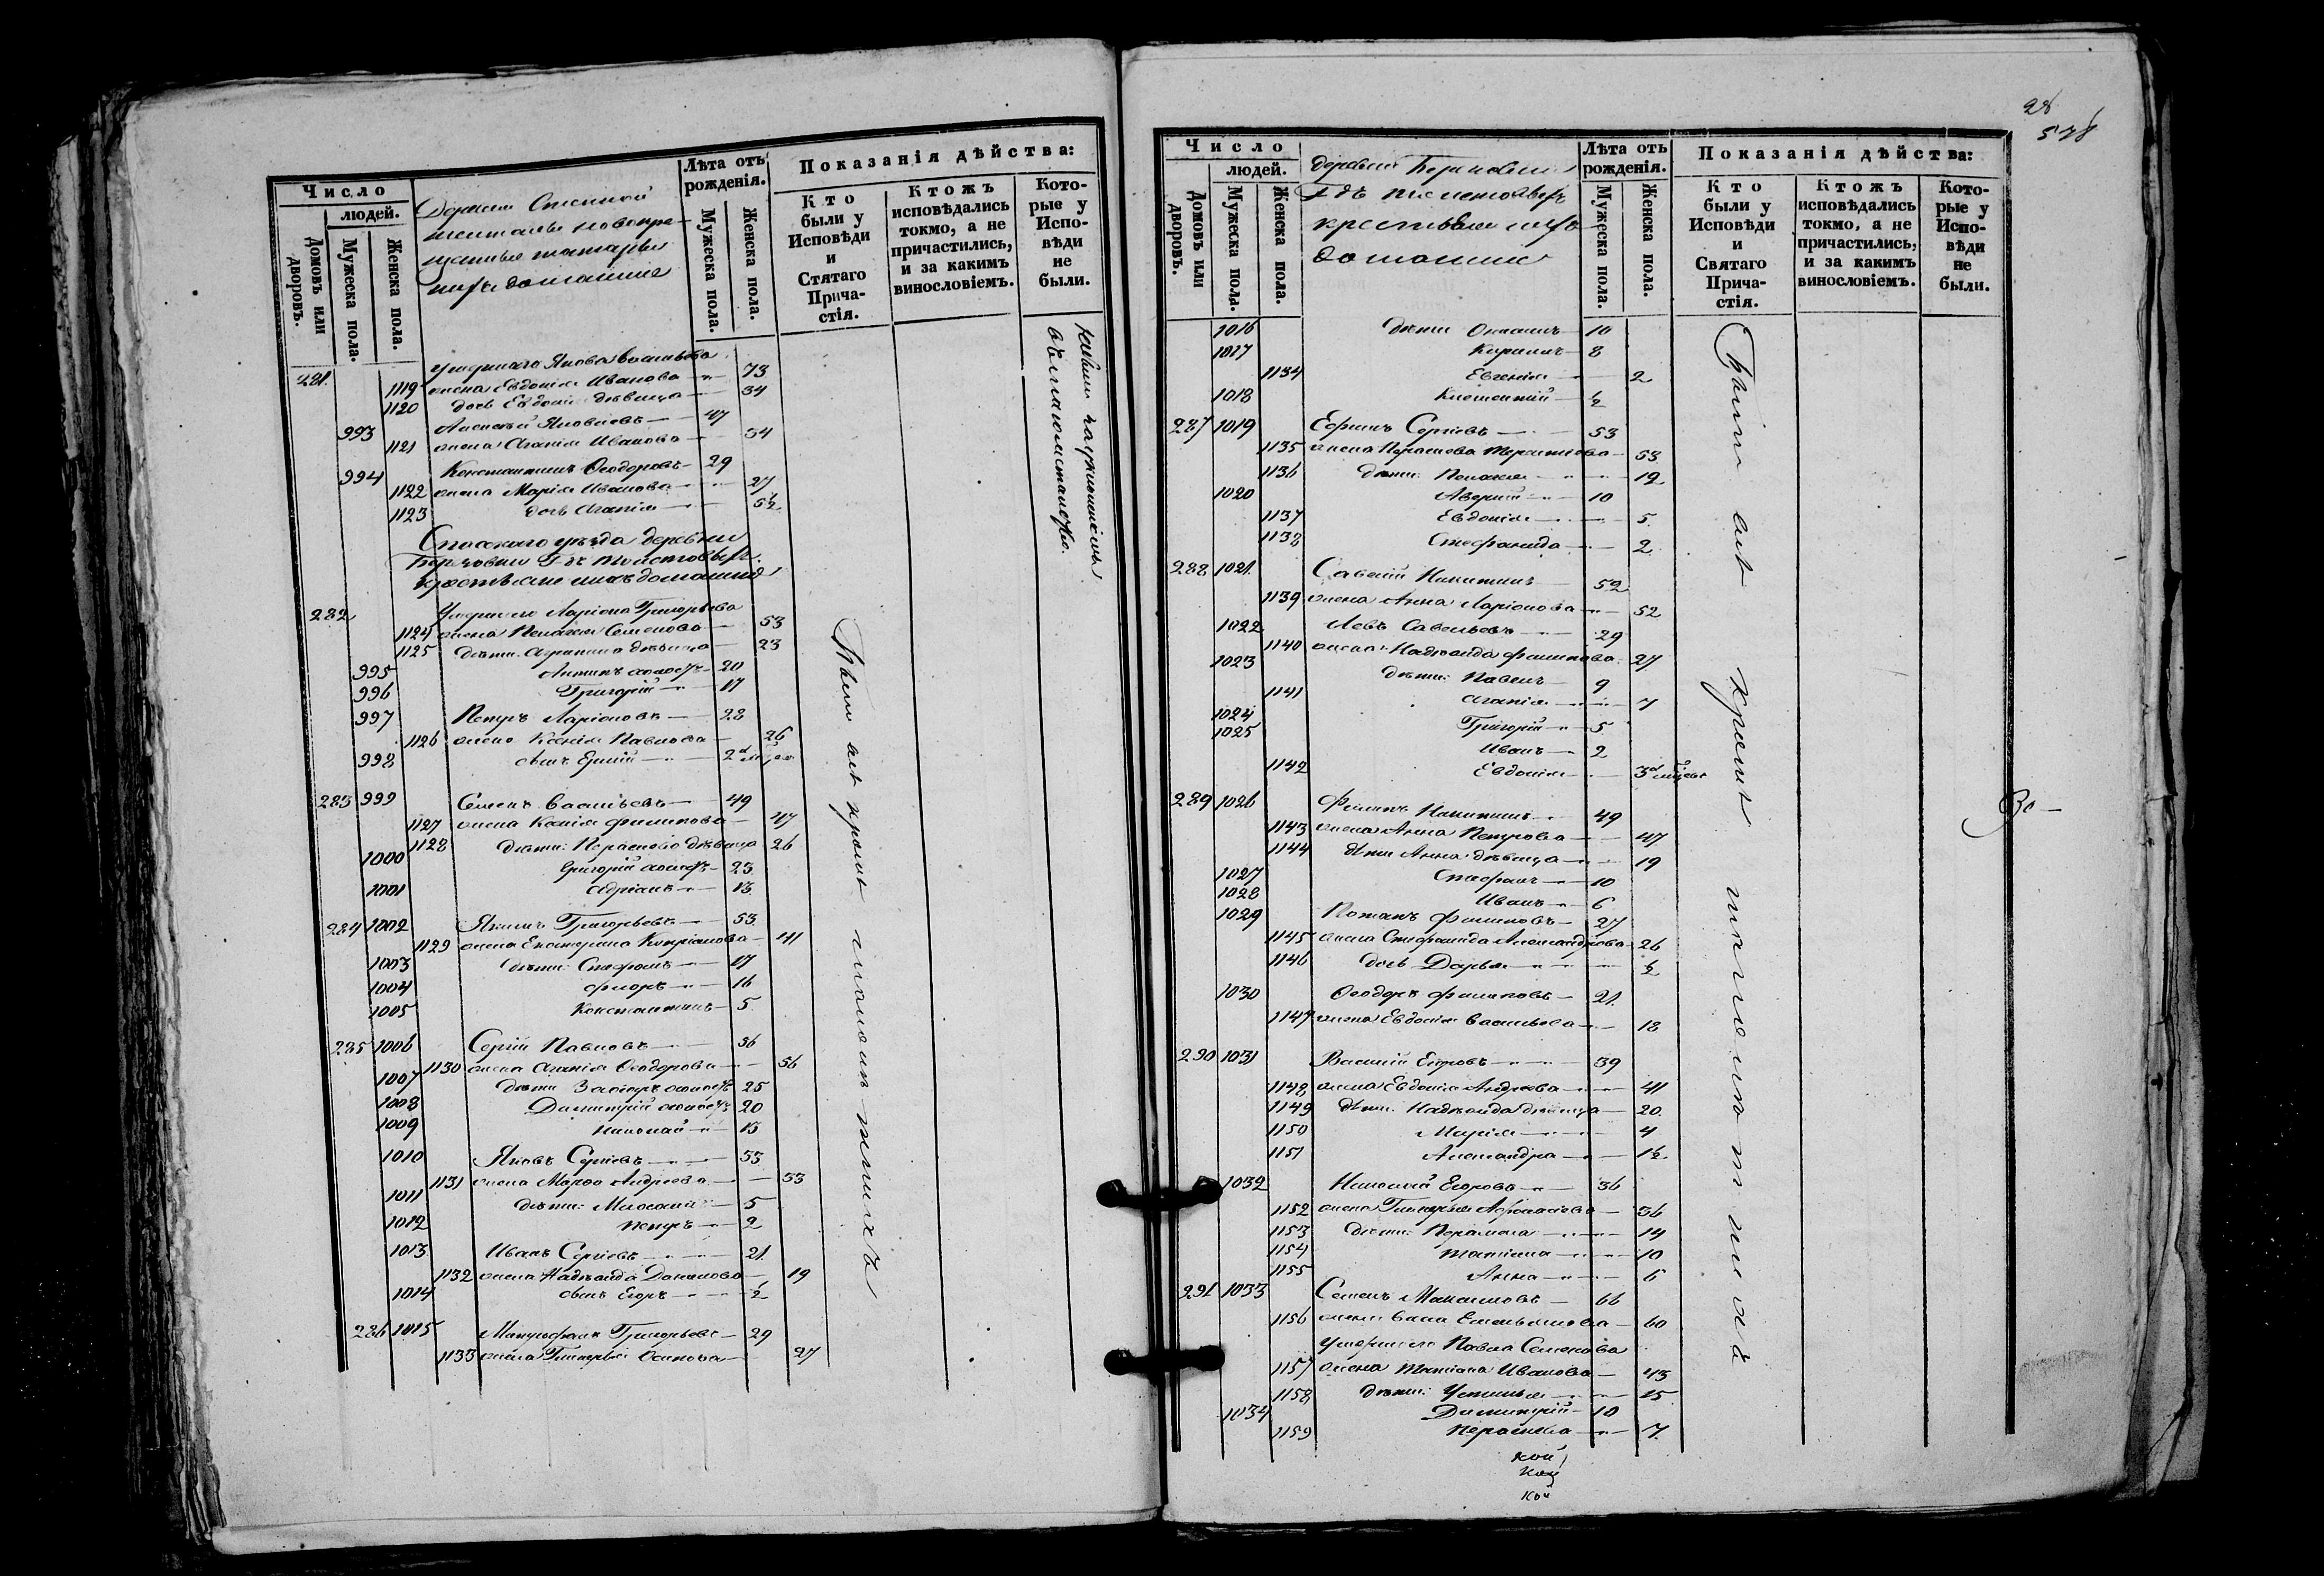 Число
людей.
Домовъ или дворовъ.
Мужеска пола.
Женска пола.
Деревни Степной
жительства новокре-
щенные татары
ихъ домашние
Лѣта отъ рожденія.
Мужеска пола.
Женска пола.
Показанія дѣйства:
Кто были у Исповѣди и Стятаго Прича-стія.
Ктожъ исповѣдались токмо, а не причастились, и за какимъ винословіемъ.
Кото-рые у Испо-вѣди не были.
281. умершаго Якова Васильева
1119 жена Евдокія Иванова 73
1120 дочь Евдокія дѣвица 34
993 Алексѣй Яковлевъ 47
1121 жена Агапія Иванова 34
994 Константинъ Ѳеодоровъ 29
1122 жена Марія Иванова 27
1123 дочь Агапія 5½
Спасскаго уѣзда деревни
крестьяне ихъ домашніе
282 Умершаго Ларіона Григорьева
1124 жена Пелагея Семенова 53
1125 дѣти: Агрипина дѣвица 23
995 Антипъ холостъ 20
996 Григорій 17
997 Петръ Ларіоновъ 28
1126 жена Ксенія Павлова 26
998 сынъ 2
283 999 Семенъ Васильевъ 49
1127 жена Ксенія Филипова 47
1128 дѣти: Параскева дѣвица 26
1000 Григорій холостъ 23
1001 Адріанъ 13
284 1002 Якимъ Григорьевъ 53
1129 жена Екатерина Кипріанова 41
1003 дѣти: Стефанъ 17
1004 Флоръ 16
1005 Константинъ 5
285 1006 Сергій Павловъ 56
1130 жена Агапія Ѳеодорова 56
1007 дѣти холостъ 25
1008 Димитрій холостъ 20
1009 Николай 13
1010 Яковъ Сергіевъ 33
1131 жена Марѳа Андреева 33
1011 дѣти: 5
1012 Петръ 2
1013 Иванъ Сергіевъ 21
1132 жена Надежда 19
1014 сынъ Егоръ ½
286 1015 Григорьевъ 29
1133 жена Гликерія Осипова 27
28
578
Число
людей.
Домовъ или дворовъ.
Мужеска пола.
Женска пола.
деревни
крестьяне ихъ
домашніе
Лѣта отъ рожденія.
Мужеска пола.
Женска пола.
Показанія дѣйства:
Кто были у Исповѣди и Святаго Прича-стія.
Ктожъ исповѣдались токмо, а не причастились, и за какимъ винословіемъ.
Кото-рые у Испо-вѣди не были.
1016 дѣти 10
1017 Кирилъ 8
1134 Евгенія 2
1018 ½
287 1019 Ефимъ Сергіевъ 53
1135 жена Параскева 53
1136 дѣти: Пелагея 12
1020 10
1137 Евдокія 5
1138 Стефанида 2
288 1021 Савелій Никитинъ 52
1139 жена Анна Ларіонова 52
1022 Левъ Савельевъ 29
1140 жена Надежда Филипова 27
1023 дѣти: Павелъ 9
1141 Агапія 7
1024 Григорій 5
1025 Иванъ 2
1142 Евдокія 3
289 1026 Филипъ Никитинъ 49
1143 жена Анна Петрова 47
1144 дѣти Анна дѣвица 19
1027 Стефанъ 10
1028 Иванъ 6
1029 Потапъ Филиповъ 27
1145 жена Стефанида Александрова 26
1146 дочь Дарья ½
1030 Ѳеодоръ Филиповъ 21
1147 жена Евдокія Васильева 18
290 1031 Василій Егоровъ 39
1148 жена Евдокія Андреева 41
1149 дѣти: Надежда дѣвица 20
1150 Марія 4
1151 Александра 1½
1032 Николай Егоровъ 36
1152 жена Гликерія Афанасьева 36
1153 дѣти: 14
1154 Татіана 10
1155 Анна 6
291 1033 Семенъ Максимовъ 66
1156 жена Емельянова 60
Умершаго Павла Семенова
1157 жена Татіана Иванова 43
1158 дѣти: Устинья 15
1034 Димитрій 10
1159 Параскева 7
кой
кой
кой
30